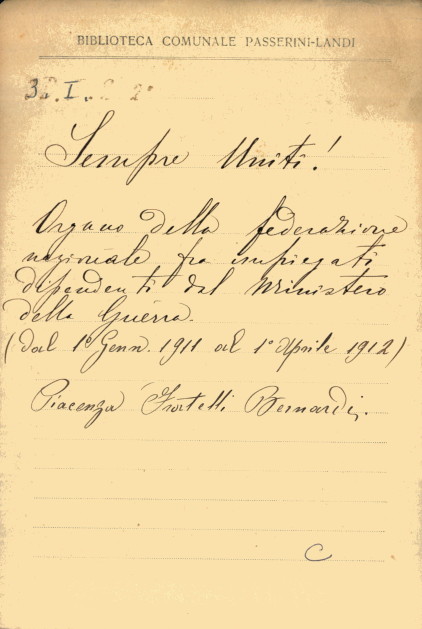 BIBLIOTECA COMUNALE PASSERINI-LANDI
Sempre Uniti!
Organo della federazione
nazionale fra impiegati
dipendenti dal Ministero
della Guerra.
(dal 1° Genn. 1911 al 1° Aprile 1912)
Piacenza Fratelli Bernardi.
C